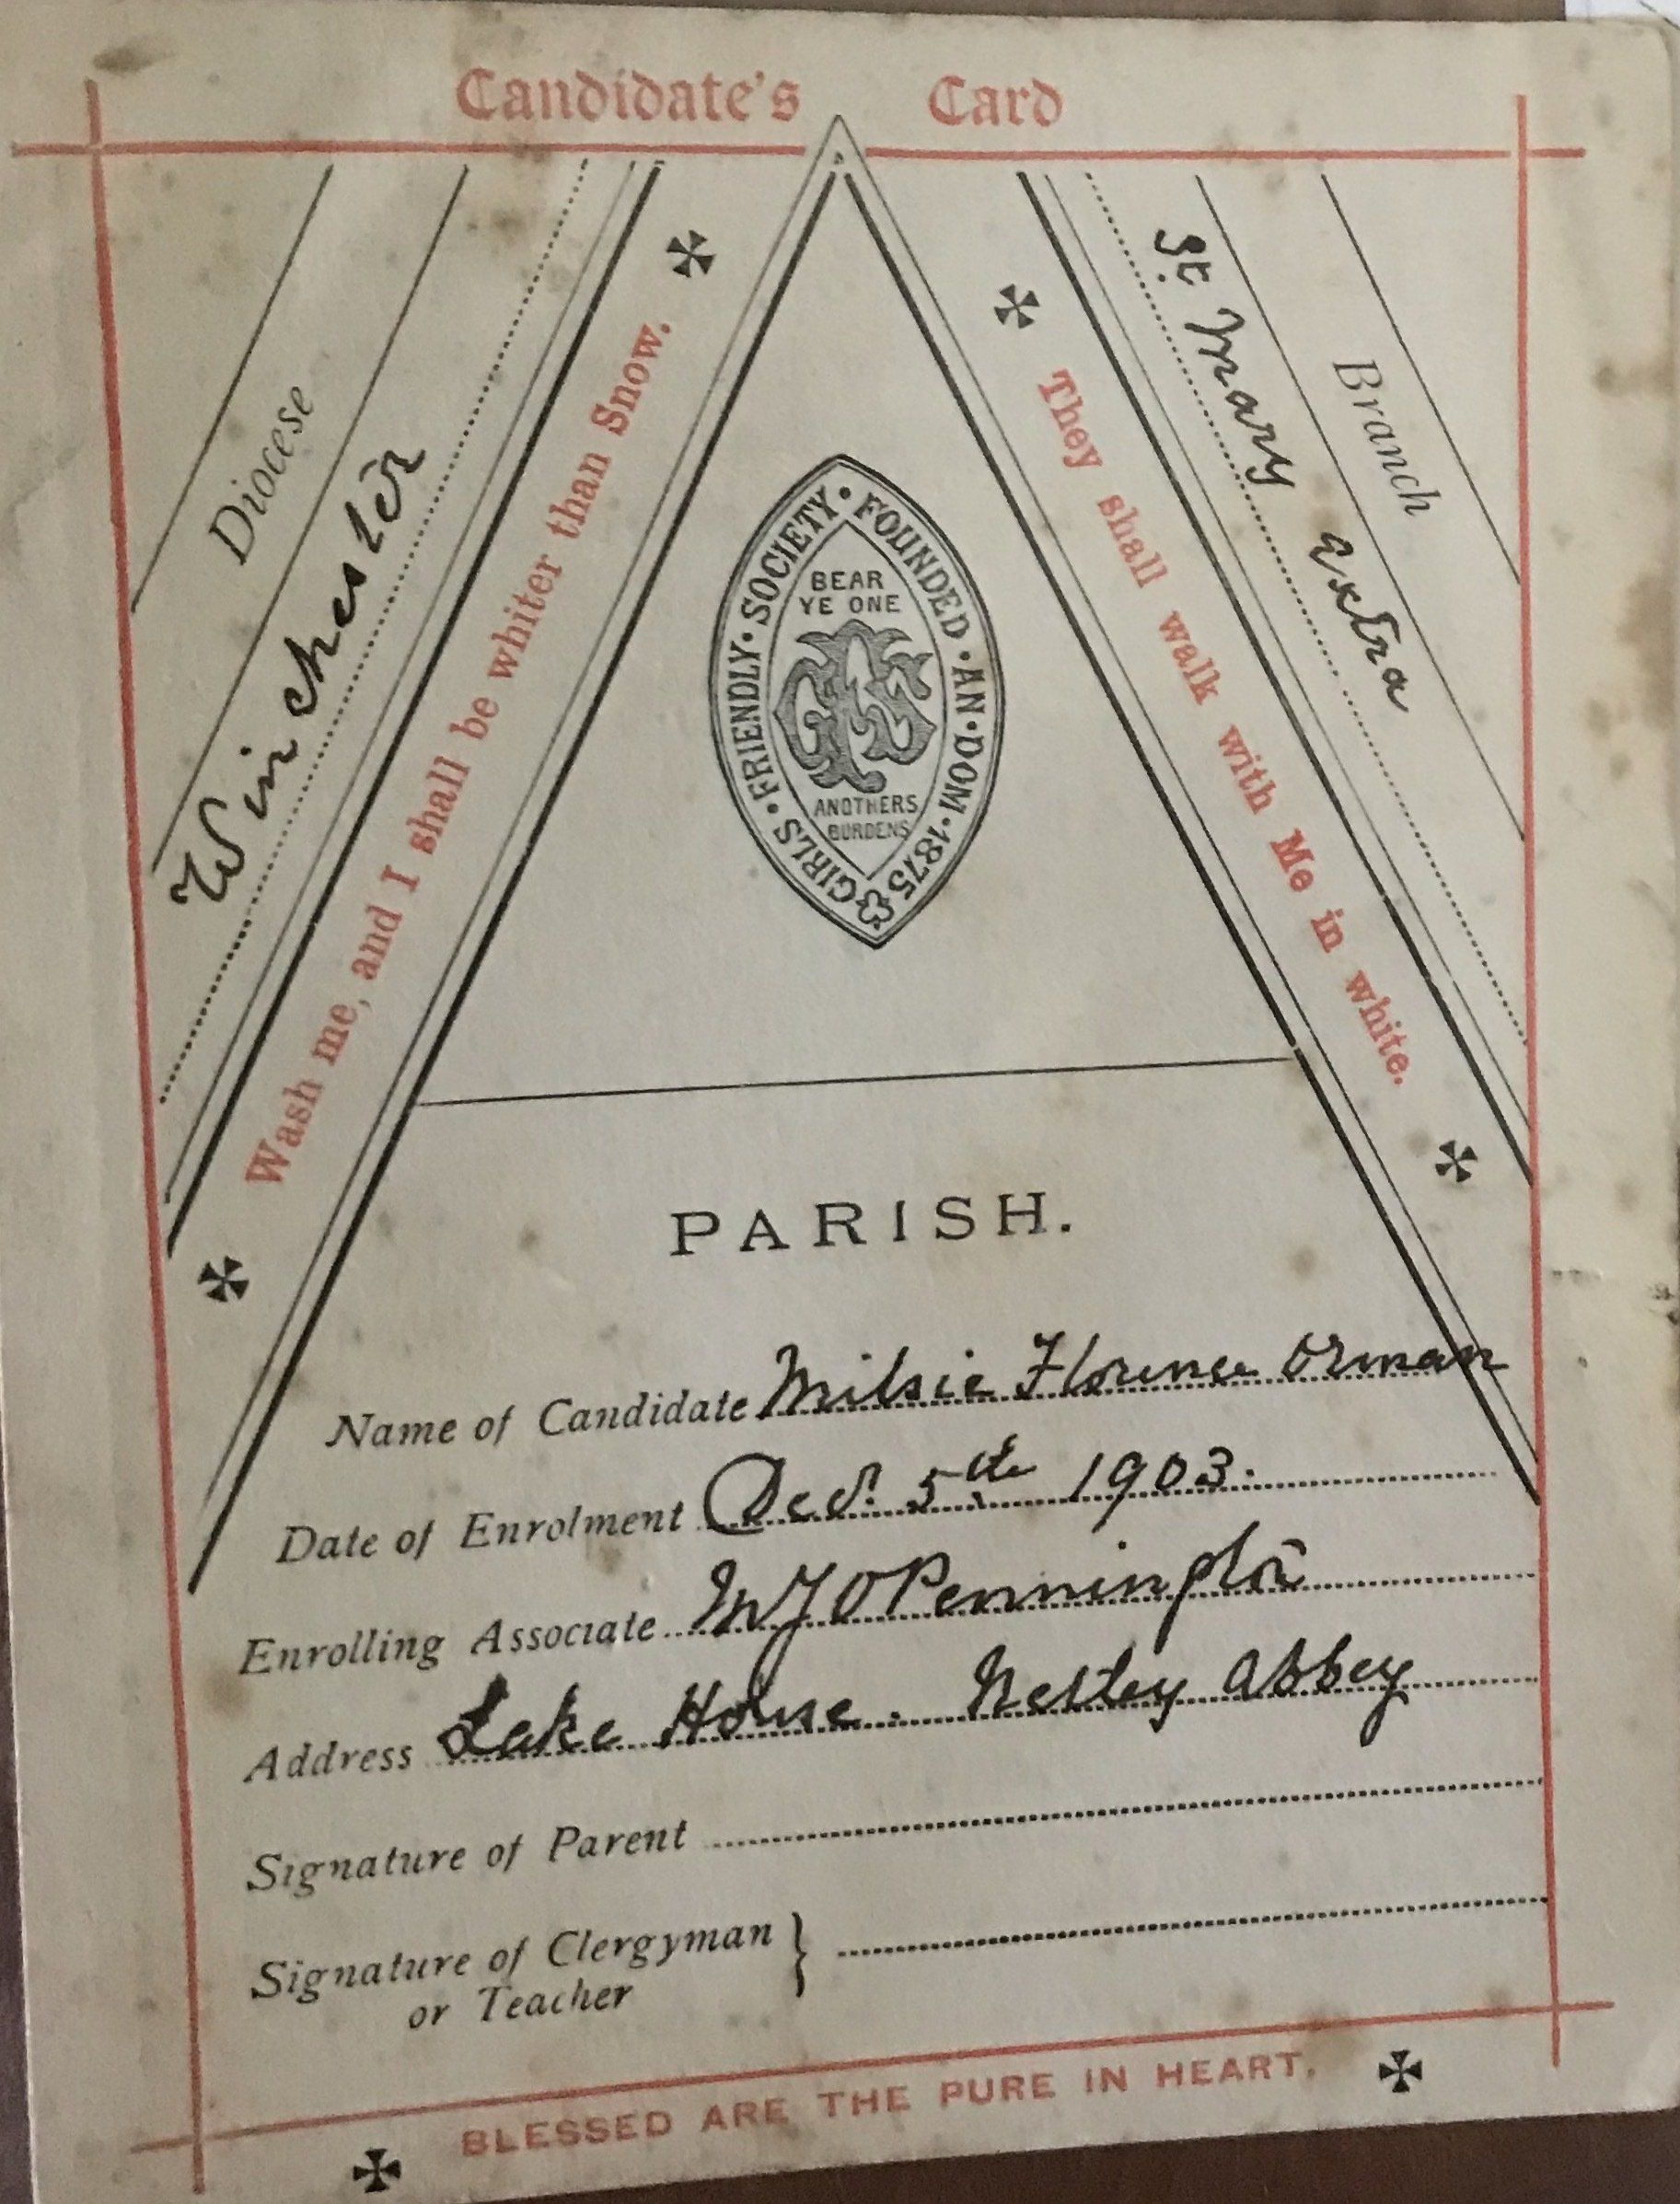 Candidate's Card
Diocese
Winchester
Wash me, and I shall be whiter than Snow.
They shall walk with Me in white.
St. Mary Extra
Branch
GIRLS · FRIENDLY · SOCIETY · FOUNDED · AN · DOM · 1875
BEAR
YE ONE
GFS
ANOTHERS
BURDENS
PARISH.
Name of Candidate Milsie Florence Orman
Date of Enrolment Decr. 5th 1903.
Enrolling Associate M J O Pennington
Address Lake House. Netley Abbey
Signature of Parent
Signature of Clergyman }
or Teacher
BLESSED ARE THE PURE IN HEART.